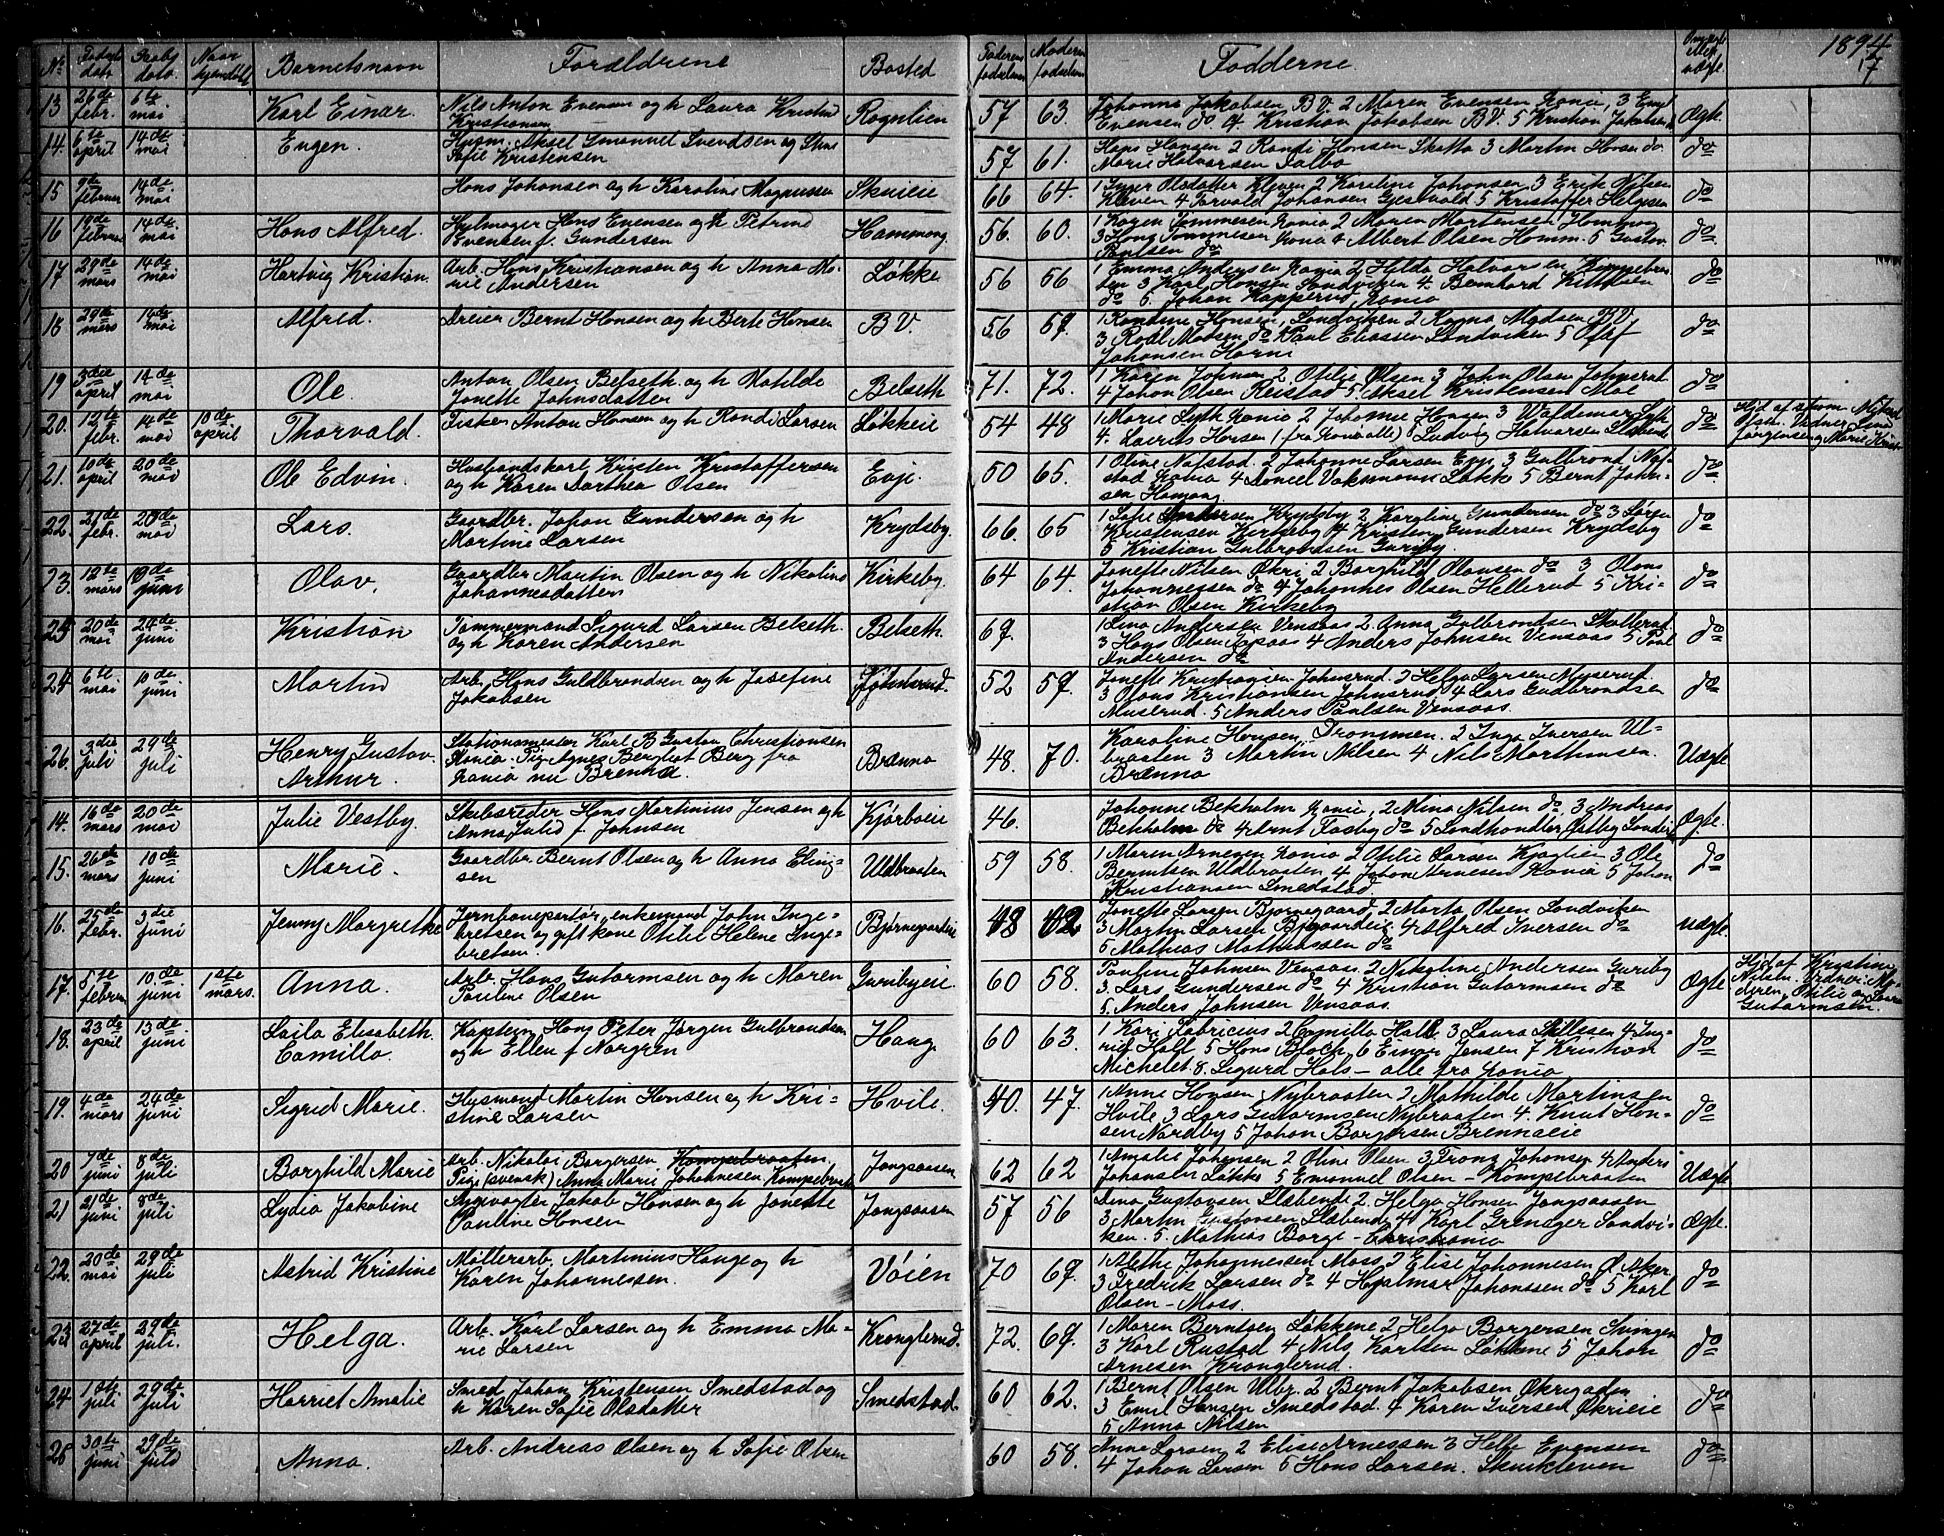 1894
17
No Fødsels dato. Daabs dato. Naar hjemdøbt Barnets navn Forældrene Bosted Faderens fødselsaar Moderens fødselsaar Fadderne. Ægte eller uægte.
13 26de febr. 6te mai Karl Einar. Nils Anton Evensen og h Laura Kristine Rognlien 57 63. Johanne Jakobsen B.V. 2 Maren Evensen Xania, 3 Emil Ægte.
Kristiansen Evensen do 4. Kristian Jakobsen B.V. 5 Kristian Jakobsen
14. 6te april 14de mai Eugen. Husm. Aksel Emanuel Svendsen og Stine 57 61. Hans Hansen 2 Randi Hansen Skotta 3 Martin Hansen do do
Sofie Kristensen Marie Halvorsen Dalbo
15 9de februar 14de mai Hans Johansen og h Karoline Magnussen Skuieie 66 64. 1 Inger Olsdatter Kleven 2 Karoline Johansen 3 Erik Nilsen do
Kleven 4 Torvald Johansen Gjestvold 5 Kristoffer Helgesen
16 19de februar 14de mai Hans Alfred. Hjulmager Hans Evensen og h Petrine Hammang 56. 60. 1 Karen Tommesen Xania 2 Maren Mortensen Hammang do
Evensen f. Gundersen 3 Hans Tommesen Xania 4 Albert Olsen Hamm. 5 Gustav
Paulsen do
17 29de mars 14de mai Hartvig Kristian. Arb. Hans Kristiansen og h Anna Ma- Løkke 56 56 1 Emma Andersen Xania 2 Hilda Halvorsen do
rie Andersen den 3 Karl Hansen Sandviken 4. Bernhard
do 5. Johan Kopperud, Xania
18 29de mars 14de mai Alfred. Dreier Bernt Hansen og h Berte Hansen B V. 56 59. 1 Randine Hansen, Sandviken 2 Ragna Madsen B V. do
3 Roal Madsen do 4 Paul Eliassen Sandviken 5 Olaf
Johansen Horni
19 3die april 14de mai Ole. Anton Olsen Belseth og h Matilde Belseth 71. 72. 1 Karen Johnsen 2. Otilie Olsen 3 John Olsen Johnsrud do
Jonette Johnsdatter 4 Johan Olsen Reistad 5. Aksel Kristensen Moe
20. 12te febr. 14de mai 10de april Thorvald. Fisker Anton Hansen og h Randi Larsen Løkkeie 54 48 1 Marie Lyth Xania 2 Johanne Hansen 3 Waldemar Lyth do
4. Laurits Hansen (fra Xania alle) 5 Ludvig Halvorsen Slæbende
21. 10de april 20de mai Ole Edvin. Husbandskarl Kristen Kristoffersen Evje. 50 65. 1 Oline Nafstad. 2 Johanne Larsen Evje 3 Gulbrand Naf- do
og h Karen Dorthea Olsen stad Xania 4 Daniel Løkke 5 Bernt Johan-
sen Hamang
22. 21de febr. 20de mai Lars. Gaardbr. Johan Gundersen og h Krydsby. 66. 65 1 Sofie Krydsby 2 Karoline Gundersen do 3 Søren do
Martine Larsen Kristensen Kirkeby 4 Kristen Gundersen Krydsby
5 Kristian Gulbrandsen Guriby.
23. 12te mars juni Olav. Gaardbr Martin Olsen og h Nikoline Kirkeby. 64 64. Jonette Nilsen Økri 2 Borghild Olausen do 3 Olaus do
Johannesdatter Johannessen do 4 Johannes Olsen Hellerud 5 Kri-
stian Olsen Kirkeby
25 20de mai 24de juni Kristian Tømmermand Sigurd Larsen Belseth Belseth. 69. 1 Lina Andersen Vensaas 2. Anna Gulbrandsen Skollerud do
og h Karen Andersen 3 Hans Olsen 4 Anders Johnsen Vensaas 5 Paul
Andersen do
24 6te mai 10de juni Martin Arb. Hans Guldbrandsen og h Josefine Johnsrud. 52 59. Jonette Kristiansen Johnsrud. 2 Helga Larsen Muserud. do
Jakobsen 3 Olaus Kristiansen Johnsrud 4 Lars Gudbrandsen
Muserud. 5 Anders Paulsen Vensaas.
26. 3die juli 29de juli Henry Gustav Stationsmester Karl B Gustav Christiansen Brenna 48. 70. Karoline Hansen, Drammen. 2 Inga Iversen Ul- Uægte
Arthur. Xania. Pige Agnes Bergliot Berg fra braaten 3 Martin Nilsen 4 Nils Marthinsen.
Xania nu Brenna. Brenna
14. 16de mars 20de mai Julie Vestby. Skibsreder Hans Martinius Jensen og h Kjørboeie 46. Johanne Bekholm Xania, 2 Mina Nilsen do, 3 Andreas Ægte.
Anna Julie f. Johnsen Bekholm do 4 Arnt Fosby do 5 Landhandler Østby Sandvi
15. 26de mars 10de juni Marie. Gaardbr. Bernt Olsen og h Anna Eling- Uldbraaten 59 58. 1 Maren Arnesen Xania 2 Otilie Larsen 3 Ole do
sen Berntsen Uldbraaten 4 Johan Arnesen Xania 5 Johan
Kristiansen Smedstad
16. 25de febr. 3die juni Jenny Margrethe Jernbanepartør, enkemand John Inge- Bjørnegaardeie 48 Jonette Larsen Bjørnegaard, 2 Marta Olsen Sandviken uægte.
bretsen og gift kone Otilie Helene Inge- 3 Martin Larsen 4 Alfred Iversen do
bretsen. 5 Mathias Mathiassen do
17. 5te februar 10de juni 1ste mars. Anna. Arb. Hans Gutormsen og h Maren Guribyeie. 60 58. Pauline Johnsen Vensaas. 2 Nikoline Andersen Guriby Ægte Hjd af Kristine
Pauline Olsen 3. Lars Gundersen do 4 Kristian Gutormsen do Nilsen. Vidner: Mo-
5. Anders Johnsen Vensaas. deren, Otilie og Laura
Gutormsen.
18. 23de april 13de juni Laila Elisabeth Kaptein Hans Peter Jørgen Gulbrandsen Haug. 60 63. 1 Kari Fabricius 2 Camilla Hall 3 Laura Lillesen 4 Ing- do
Camilla. og h Ellen f Norgren rid Hall 5 Hans Bloch 6 Einar Jensen 7 Kristian
Michelet 8. Sigurd Hals – alle fra Xania
19. 4de mars 24de juni Sigrid Marie. Husmand Martin Hansen og h Kri- Hvile. 40. 47. 1 Anne Hansen Nybraaten 2 Mathilde Martinsen do
stine Larsen Hvile 3 Lars Gutormsen Nybraaten 4. Knut Han-
sen Nordby 5 Johan Borgersen Brennaeie
20 7de juni 8de juli Borghild Marie Arb. Nikolai Borgersen, Kampebraaten Jongsaasen 62 62 1 Amalie Johansen 2 Oline Olsen 3 Frans Johansen 4 Anders Uægte
Pige (svensk) Anna Marie Johannesen Kampebraat Johansen Løkke 5 Emanuel Olsen – Kampebraaten
21 21de juni 8de juli Lydia Jakobine Jakob Hansen og h Jonette Jongsaasen 57 56 Lina Gustavsen Slæbende 2. Helga Hansen Jongsaasen Ægte.
Pauline Hansen 3 Martin Gustavsen Slæbende 4 Karl Grenager Sandvi-
ken. 5. Mathias Borge – Christiania
22. 20de mai 29de juli Astrid Kristine Møllerarb. Martinius Hauge og h Vøien 70 69. 1 Alethe Johannessen Moss 2 Elise Johannesen Ø. Aker do
Karen Johannessen. 3 Fredrik Larsen do 4 Hjalmar Johanssen do 5 Karl
Olsen – Moss.
23. 27de april 29de juli. Helga. Arb. Karl Larsen og h Emma Ma- Kronglerud. 72. 69. 1 Maren Berntsen Løkkene 2 Helga Borgersen Svingen do
rie Larsen 3 Karl Rustad 4 Nils Karlsen Løkkene 5 Johan
Arnesen Kronglerud.
24 1ste juli 29de juli Harriet Amalie Smed Johan Kristensen Smedstad og Smedstad. 60 62. 1 Bernt Olsen Ulbr. 2 Bernt Jakobsen Økrigaden do
h Karen Sofie Olsdatter 3 Emil Hansen Smedstad. 4 Karen Iversen Økrieie
5 Anna Nilsen
25 30te juni 29de juli Anna. Arb. Andreas Olsen og h Sofie Olsen 60 58. Anne Larsen 2 Elise Arnessen 3 Helle Evensen do
4 Johan Larsen 5 Hans Larsen. Skuikleven